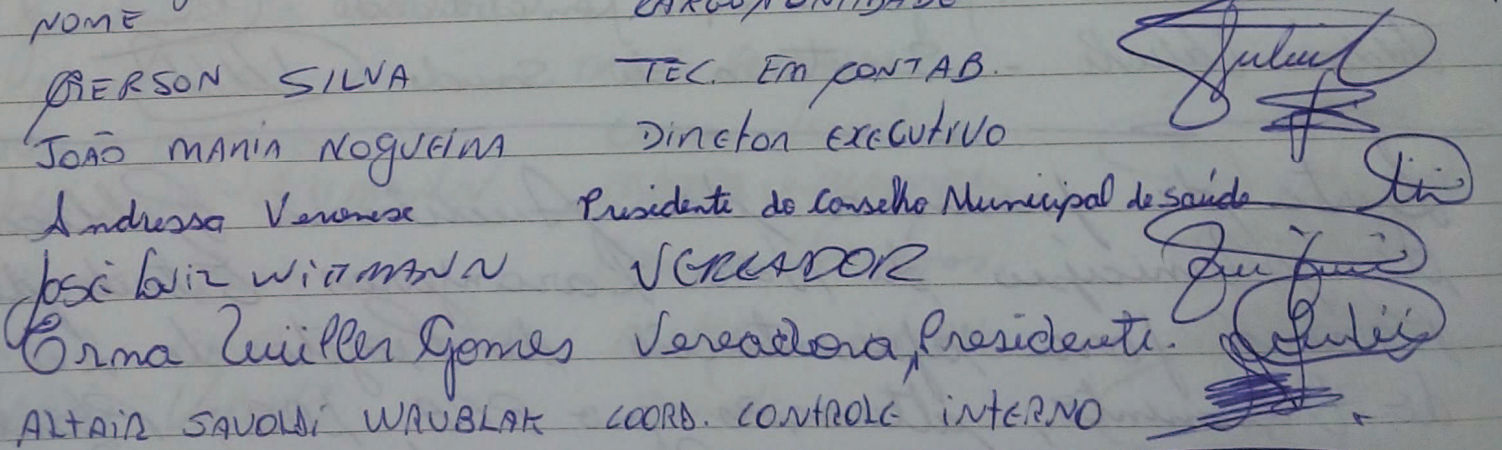 NOME CARGO/ENTIDADE
GERSON SILVA TEC. EM CONTAB.
JOÃO MARIA NOGUEIRA DIRETOR EXECUTIVO
Andressa Veronese Presidente do Conselho Municipal de Saúde
José Luiz WITTMANN VEREADOR
Erma Gomes Vereadora, Presidente.
ALTAIR SAVOLDI WRUBLAK COORD. CONTROLE INTERNO